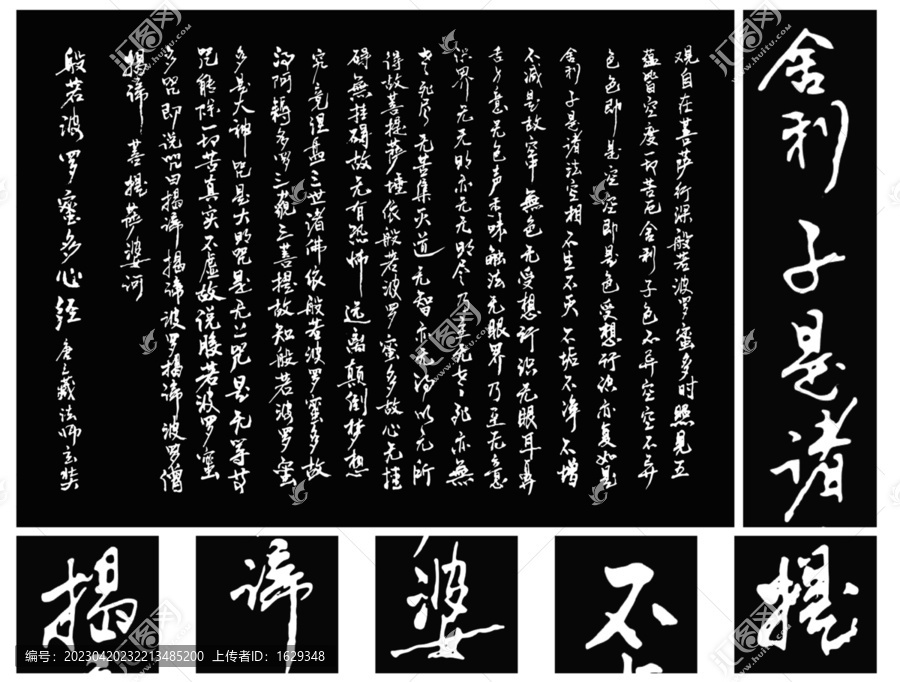 观自在菩萨行深般若波罗蜜多时照见五
蕴皆空度一切苦厄舍利子色不异空空不异
色色即是空空即是色受想行识亦复如是
舍利子是诸法空相不生不灭不垢不净不增
不减是故空中無色无受想行识无眼耳鼻
舌身意无色声香味触法无眼界乃至无意
识界无无明亦无无明尽乃至无老死亦無
老死尽无苦集灭道无智亦无得以无所
得故菩提萨埵依般若波罗蜜多故心无挂
碍無挂碍故无有恐怖远离颠倒梦想
究竟涅盘三世诸佛依般若波罗蜜多故
得阿耨多罗三藐三菩提故知般若波罗蜜
多是大神咒是大明咒是无上咒是无等等
咒能除一切苦真实不虚故说般若波罗蜜
多咒即说咒曰揭谛揭谛波罗揭谛波罗僧
揭谛菩提萨婆诃
般若波罗蜜多心经
唐三藏法师玄奘
舍利子是诸
揭
谛
婆
不
提
汇图网
www.huitu.com
编号：20230420232213485200 上传者ID：1629348